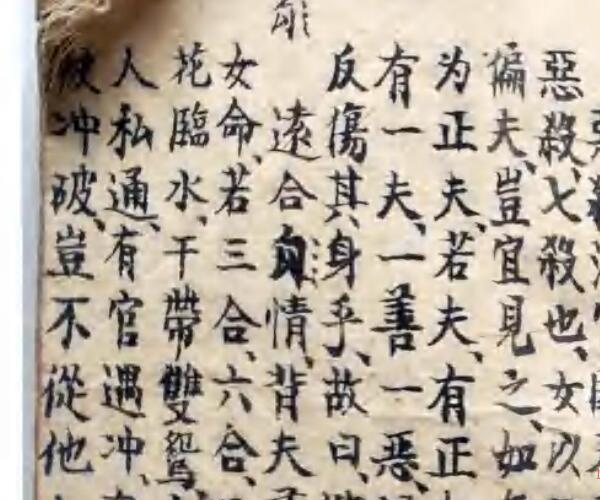 惡殺、七殺也、女以
偏夫、豈宜見之、如
为正夫、若夫、有正
有一夫、一善一惡、
反傷其身乎、故曰、
遠合勾情、背夫
女命、若三合、六合、
花臨水、干帶雙鴛
人私通、有官遇冲、
被冲破、豈不從他